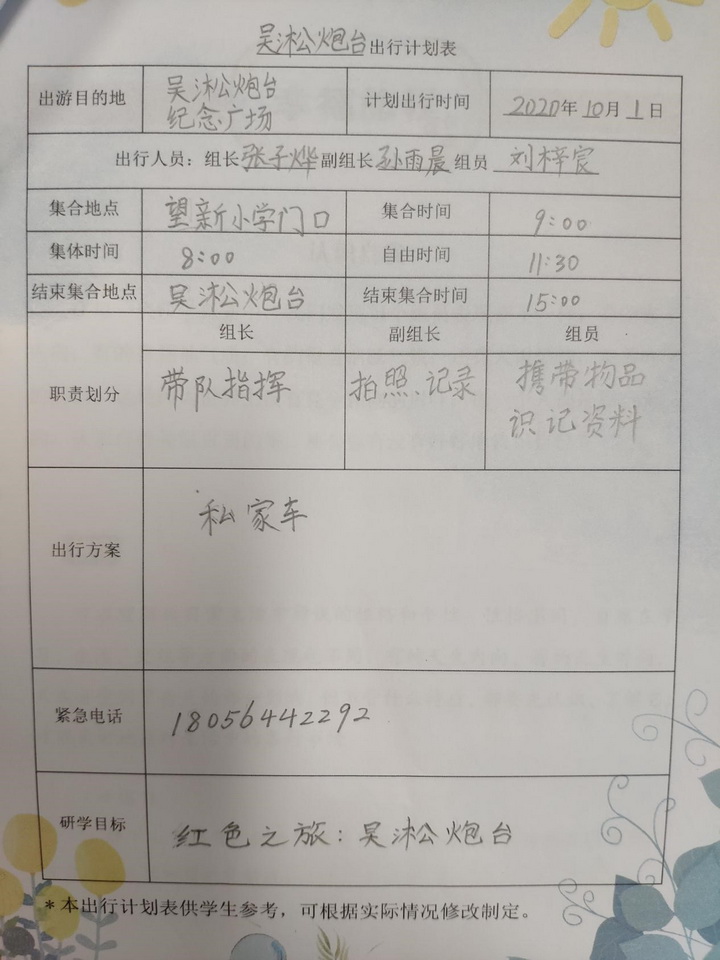 吴淞炮台出行计划表
出游目的地 吴淞炮台 计划出行时间 2020年10月1日
纪念广场
出行人员：组长张子烨副组长孙雨晨组员刘梓宸
集合地点 望新小学门口 集合时间 9:00
集体时间 8:00 自由时间 11:30
结束集合地点 吴淞公炮台 结束集合时间 15:00
组长 副组长 组员
职责划分 带队指挥 拍照、记录 携带物品
识记资料
出行方案 私家车
紧急电话 18056442292
研学目标 红色之旅：吴淞炮台
*本出行计划表供学生参考，可根据实际情况修改制定。